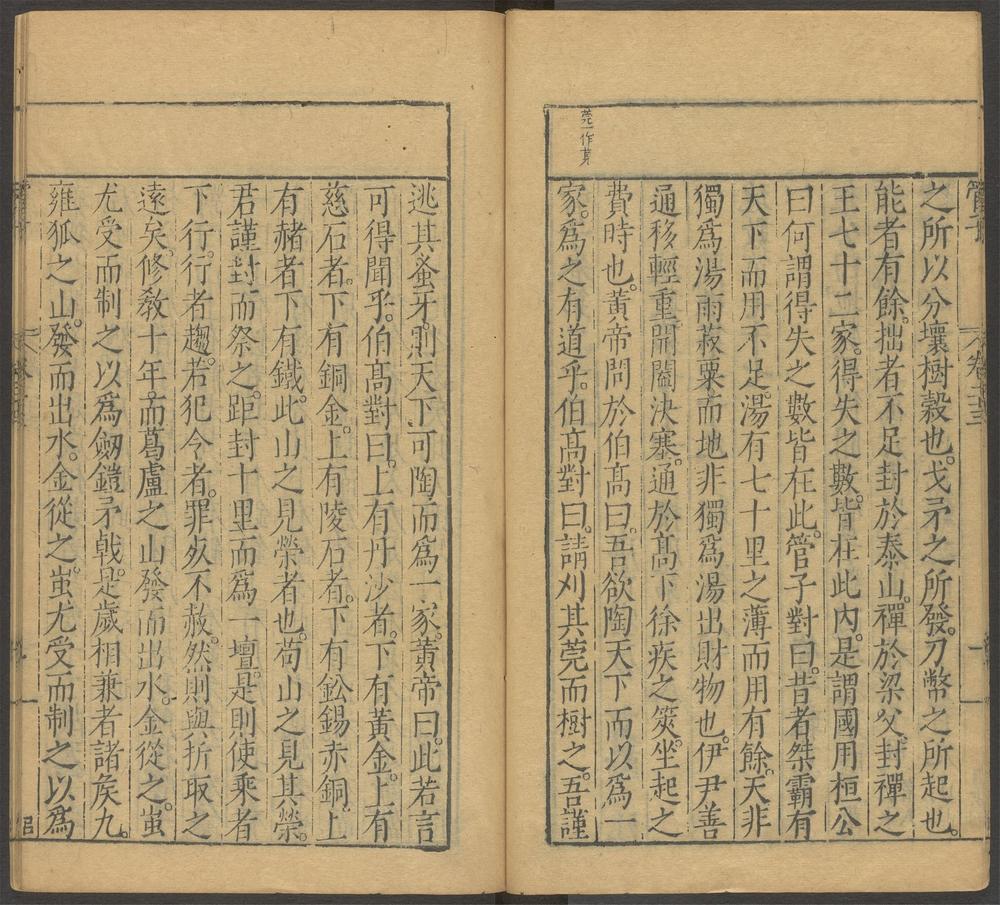 管子
卷二十三
莞一作筦
之所以分壤樹穀也。戈矛之所發。刀幣之所起也。
能者有餘。拙者不足。封於泰山。禪於梁父。封禪之
王七十二家。得失之數。皆在此內。是謂國用桓公
曰何謂得失之數皆在此。管子對曰。昔者桀霸有
天下而用不足。湯有七十里之薄而用有餘。天非
獨爲湯雨菽粟而地非獨爲湯出財物也。伊尹善
通移輕重。開闔決塞。通於髙下徐疾之筴。坐起之
費時也。黃帝問於伯髙曰。吾欲陶天下而以爲一
家。爲之有道乎。伯髙對曰。請刈其莞而樹之。吾謹
逃其蚤牙。則天下可陶而爲一家。黃帝曰。此若言
可得聞乎。伯髙對曰。上有丹沙者。下有黃金。上有
慈石者。下有銅金。上有陵石者。下有鈆錫赤銅。上
有赭者下有鐵。此山之見榮者也。苟山之見其榮。
君謹封而祭之。距封十里而爲一壇。是則使乘者
下行。行者趨。若犯令者。罪死不赦。然則與折取之
遠矣。修敎十年。而葛盧之山發而出水。金從之。蚩
尤受而制之以爲劒鎧矛戟。是歲相兼者諸矦九。
雍狐之山。發而出水。金從之。蚩尤受而制之以爲